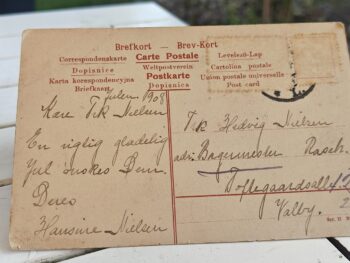 Brefkort — Brev-Kort
Correspondenzkarte Carte Postale Levelező-Lap
Dopisnice Weltpostverein Cartolina postale
Karta korespondencyjna Postkarte Union postale universelle
Briefkaart Dopisnica Post card
Julen 1908
Kære Frk Nielsen
En rigtig glædelig
Jul ønskes Dem.
Deres
Hansine Nielsen
Frk Hedvig Nielsen
adr: Bagermester Rasch.
Toftegaardsallé
Valby.